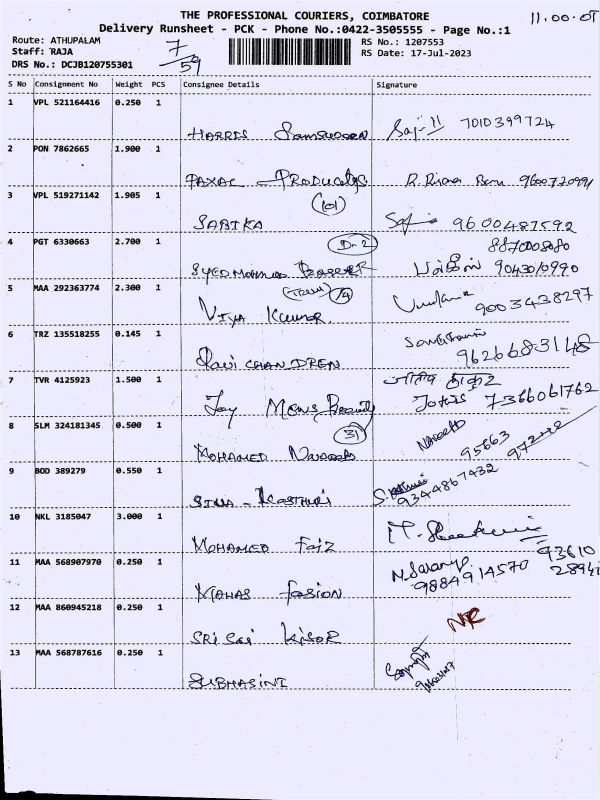 THE PROFESSIONAL COURIERS, COIMBATORE
11.00.01
Delivery Runsheet - PCK - Phone No.:0422-3505555 - Page No.:1
Route: ATHUPALAM
7/59
RS No.: 1207553
Staff: RAJA
RS Date: 17-Jul-2023
DRS No.: DCJB120755301
S No Consignment No Weight PCS Consignee Details Signature
1 VPL 521164416 0.250 1 HARRIS 7010399724
2 PON 7862665 1.900 1 PAXAL - PRODUCTS 9600720991
(101)
3 VPL 519271142 1.905 1 SABIKA 9600487592
D-2 8870008080
4 PGT 6330663 2.700 1 SYED 9043010990
5 MAA 292363774 2.300 1 VIYA Kumar 74 9003438297
6 TRZ 135518255 0.145 1 Ravi CHANDREN 9626683148
7 TVR 4125923 1.500 1 Joy MENS Beauty 7366061762
31
8 SLM 324181345 0.500 1 MOHAMED 95663 97242
9 BOD 389279 0.550 1 9344867432
10 NKL 3185047 3.000 1 MOHAMED Faiz
11 MAA 568907970 0.250 1 MAHAS fasion N. Saranya 9884914570 93610 28941
12 MAA 860945218 0.250 1 SRI Sai KISOR NR
13 MAA 568787616 0.250 1 SUBHASINI